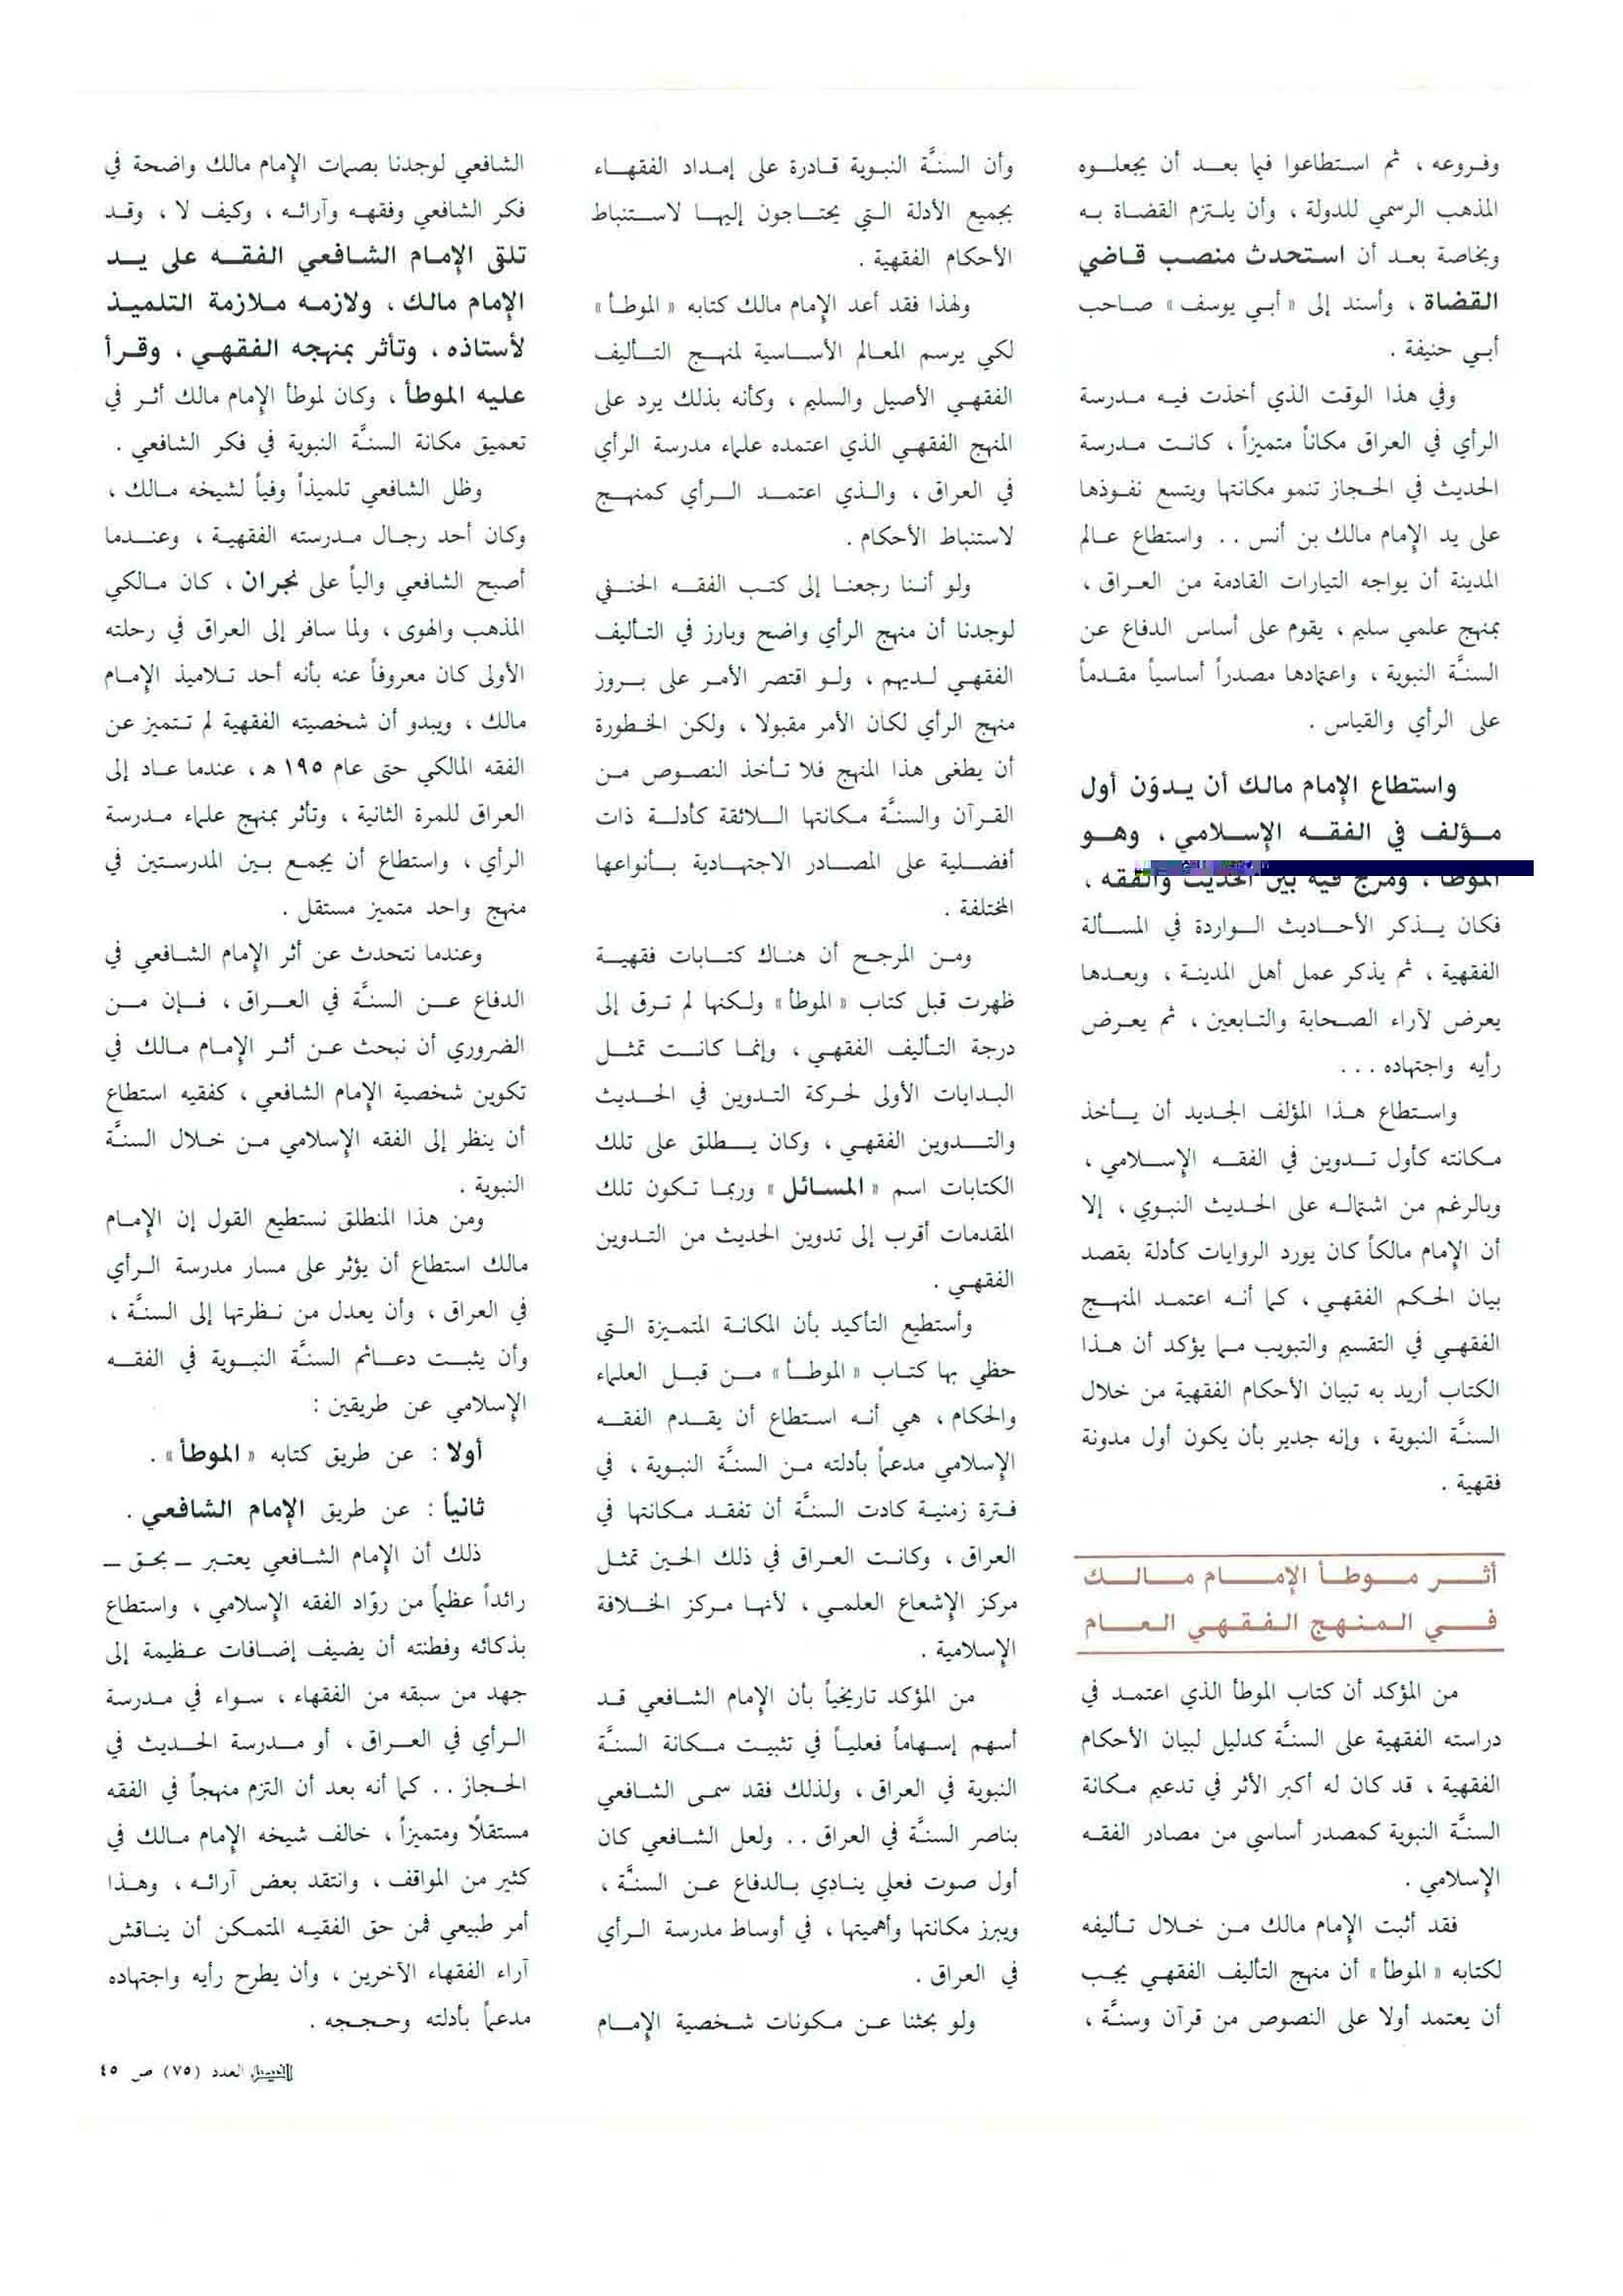 وفروعه ، ثم استطاعوا فيما بعد أن يجعلوه
المذهب الرسمي للدولة ، وأن يلتزم القضاة به
وبخاصة بعد أن استحدث منصب قاضي
القضاة ، وأسند إلى « أبي يوسف » صاحب
أبي حنيفة .
وفي هذا الوقت الذي أخذت فيه مدرسة
الرأي في العراق مكاناً متميزاً ، كانت مدرسة
الحديث في الحجاز تنمو مكانتها ويتسع نفوذها
على يد الإمام مالك بن أنس .. واستطاع عالم
المدينة أن يواجه التيارات القادمة من العراق ،
بمنهج علمي سليم ، يقوم على أساس الدفاع عن
السنَّة النبوية ، واعتمادها مصدراً أساسياً مقدماً
على الرأي والقياس .
واستطاع الإمام مالك أن يدوّن أول
مؤلف في الفقه الإسلامي ، وهو
الموطأ ، ومزج فيه بين الحديث والفقه ،
فكان يذكر الأحاديث الواردة في المسألة
الفقهية ، ثم يذكر عمل أهل المدينة ، وبعدها
يعرض لآراء الصحابة والتابعين ، ثم يعرض
رأيه واجتهاده ...
واستطاع هذا المؤلف الجديد أن يأخذ
مكانته كأول تدوين في الفقه الإسلامي ،
وبالرغم من اشتماله على الحديث النبوي ، إلا
أن الإمام مالكاً كان يورد الروايات كأدلة بقصد
بيان الحكم الفقهي ، كما أنه اعتمد المنهج
الفقهي في التقسيم والتبويب مما يؤكد أن هذا
الكتاب أريد به تبيان الأحكام الفقهية من خلال
السنَّة النبوية ، وإنه جدير بأن يكون أول مدونة
فقهية .
أثر موطأ الإمام مالك
في المنهج الفقهي العام
من المؤكد أن كتاب الموطأ الذي اعتمد في
دراسته الفقهية على السنَّة كدليل لبيان الأحكام
الفقهية ، قد كان له أكبر الأثر في تدعيم مكانة
السنَّة النبوية كمصدر أساسي من مصادر الفقه
الإسلامي .
فقد أثبت الإمام مالك من خلال تأليفه
لكتابه « الموطأ » أن منهج التأليف الفقهي يجب
أن يعتمد أولا على النصوص من قرآن وسنَّة ،
وأن السنَّة النبوية قادرة على إمداد الفقهاء
بجميع الأدلة التي يحتاجون إليها لاستنباط
الأحكام الفقهية .
ولهذا فقد أعد الإمام مالك كتابه « الموطأ »
لكي يرسم المعالم الأساسية لمنهج التأليف
الفقهي الأصيل والسليم ، وكأنه بذلك يرد على
المنهج الفقهي الذي اعتمده علماء مدرسة الرأي
في العراق ، والذي اعتمد الرأي كمنهج
لاستنباط الأحكام .
ولو أننا رجعنا إلى كتب الفقه الحنفي
لوجدنا أن منهج الرأي واضح وبارز في التأليف
الفقهي لديهم ، ولو اقتصر الأمر على بروز
منهج الرأي لكان الأمر مقبولا ، ولكن الخطورة
أن يطغى هذا المنهج فلا تأخذ النصوص من
القرآن والسنَّة مكانتها اللائقة كأدلة ذات
أفضلية على المصادر الاجتهادية بأنواعها
المختلفة .
ومن المرجح أن هناك كتابات فقهية
ظهرت قبل كتاب « الموطأ » ولكنها لم ترق إلى
درجة التأليف الفقهي ، وإنما كانت تمثل
البدايات الأولى لحركة التدوين في الحديث
والتدوين الفقهي ، وكان يطلق على تلك
الكتابات اسم « المسائل » وربما تكون تلك
المقدمات أقرب إلى تدوين الحديث من التدوين
الفقهي .
وأستطيع التأكيد بأن المكانة المتميزة التي
حظي بها كتاب « الموطأ » من قبل العلماء
والحكام ، هي أنه استطاع أن يقدم الفقه
الإسلامي مدعماً بأدلته من السنَّة النبوية ، في
فترة زمنية كادت السنَّة أن تفقد مكانتها في
العراق ، وكانت العراق في ذلك الحين تمثل
مركز الإشعاع العلمي ، لأنها مركز الخلافة
الإسلامية .
من المؤكد تاريخياً بأن الإمام الشافعي قد
أسهم إسهاماً فعلياً في تثبيت مكانة السنَّة
النبوية في العراق ، ولذلك فقد سمى الشافعي
بناصر السنَّة في العراق .. ولعل الشافعي كان
أول صوت فعلي ينادي بالدفاع عن السنَّة ،
ويبرز مكانتها وأهميتها ، في أوساط مدرسة الرأي
في العراق .
ولو بحثنا عن مكونات شخصية الإمام
الشافعي لوجدنا بصمات الإمام مالك واضحة في
فكر الشافعي وفقهه وآرائه ، وكيف لا ، وقد
تلقى الإمام الشافعي الفقه على يد
الإمام مالك ، ولازمه ملازمة التلميذ
لأستاذه ، وتأثر بمنهجه الفقهي ، وقرأ
عليه الموطأ ، وكان لموطأ الإمام مالك أثر في
تعميق مكانة السنَّة النبوية في فكر الشافعي .
وظل الشافعي تلميذاً وفياً لشيخه مالك ،
وكان أحد رجال مدرسته الفقهية ، وعندما
أصبح الشافعي والياً على نجران ، كان مالكي
المذهب والهوى ، ولما سافر إلى العراق في رحلته
الأولى كان معروفاً عنه بأنه أحد تلاميذ الإمام
مالك ، ويبدو أن شخصيته الفقهية لم تتميز عن
الفقه المالكي حتى عام ١٩٥ ه ، عندما عاد إلى
العراق للمرة الثانية ، وتأثر بمنهج علماء مدرسة
الرأي ، واستطاع أن يجمع بين المدرستين في
منهج واحد متميز مستقل .
وعندما نتحدث عن أثر الإمام الشافعي في
الدفاع عن السنَّة في العراق ، فإن من
الضروري أن نبحث عن أثر الإمام مالك في
تكوين شخصية الإمام الشافعي ، كفقيه استطاع
أن ينظر إلى الفقه الإسلامي من خلال السنَّة
النبوية .
ومن هذا المنطلق نستطيع القول إن الإمام
مالك استطاع أن يؤثر على مسار مدرسة الرأي
في العراق ، وأن يعدل من نظرتها إلى السنَّة ،
وأن يثبت دعائم السنَّة النبوية في الفقه
الإسلامي عن طريقين :
أولا : عن طريق كتابه « الموطأ » .
ثانياً : عن طريق الإمام الشافعي .
ذلك أن الإمام الشافعي يعتبر ــ بحق ــ
رائداً عظيماً من روّاد الفقه الإسلامي ، واستطاع
بذكائه وفطنته أن يضيف إضافات عظيمة إلى
جهد من سبقه من الفقهاء ، سواء في مدرسة
الرأي في العراق ، أو مدرسة الحديث في
الحجاز .. كما أنه بعد أن التزم منهجاً في الفقه
مستقلًا ومتميزاً ، خالف شيخه الإمام مالك في
كثير من المواقف ، وانتقد بعض آرائه ، وهذا
أمر طبيعي فمن حق الفقيه المتمكن أن يناقش
آراء الفقهاء الآخرين ، وأن يطرح رأيه واجتهاده
مدعماً بأدلته وحججه .
الفيصل العدد (٧٥) ص ٤٥